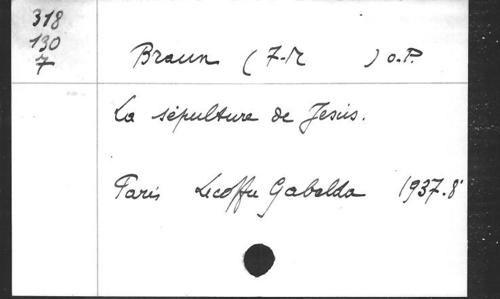 318
130
7
Braun (F-M ) O.P.
La sépulture de Jesús.
Paris Lecoffre Gabalda 1937-8°